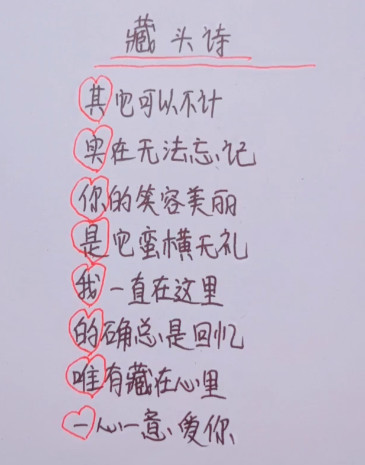 藏头诗
其它可以不计
实在无法忘记
你的笑容美丽
是它蛮横无礼
我一直在这里
的确总是回忆
唯有藏在心里
一心一意爱你